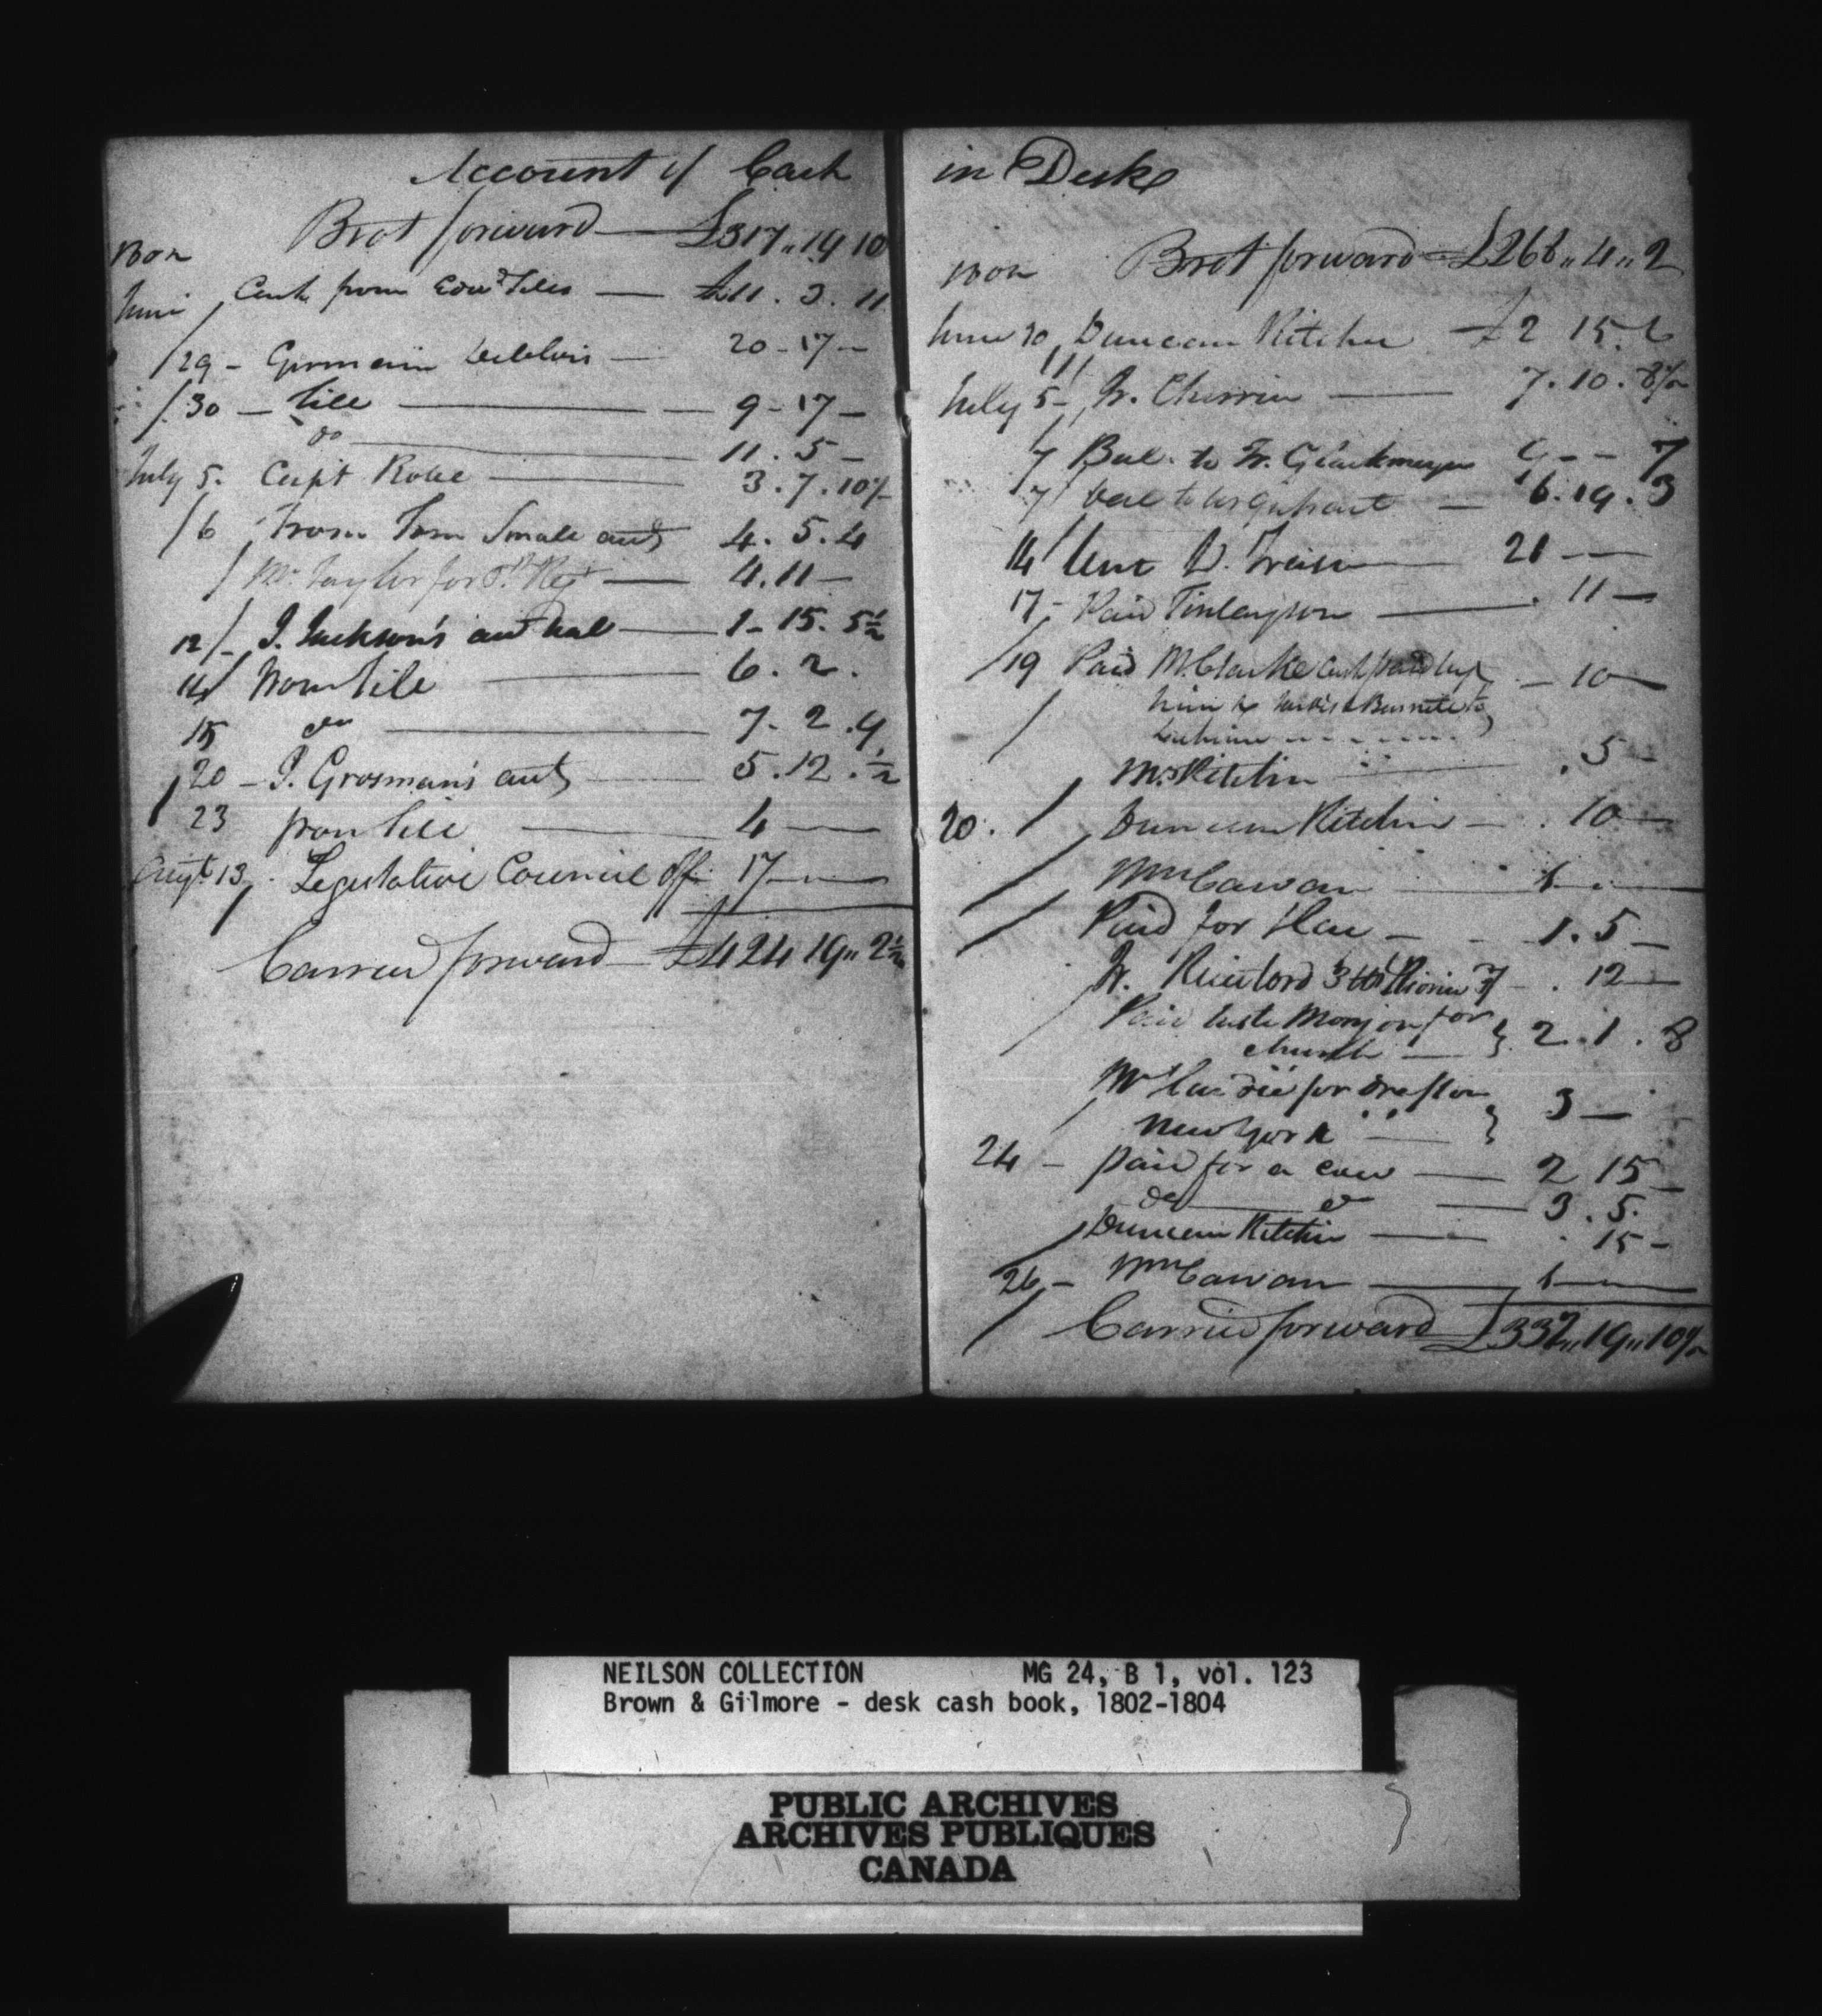 Account of Cash
Brot forward — £317 „ 19 10
June Cash from Edwd — £11 . 3 . 11
29 - Germain — 20 - 17 —
30 — Till — 9 - 17 —
do — 11 . 5 —
July 5. Capt Robe — 3 . 7 . 10½
6 From Tom Small acct 4 . 5 . 4
Mr Taylor for — 4 . 11 —
12 J. Jackson's acct bal — 1 - 15 . 5½
14 From till — 6 . 2 .
15 do — 7 . 2 . 9
20 - J. Grosman's acct — 5 . 12 . ½
23 from till — 4 —
Augt 13 . Legislative Council Off 17 —
Carried forward — £424 19 „ 2½
in Desk
Brot forward — £266 „ 4 „ 2
June 30 Duncan Kitchin £2 15 . 6
July 5 - Fr. — 7 . 10 . 8½
7 Bal. to Fr. Glackmeyer 9 - - 7
7 bal to Urquhart — 6 . 19 . 3
14 Lent D. — 21 —
17 - Paid Finlayson — . 11 —
19 Paid Mr Clarke Cash paid by — 10 —
him to Burnet to
Mr Kitchin . 5 -
20 . Duncan Kitchin — . 10 —
Wm Cawan 1 —
Paid for Hay — 1 . 5 —
Fr. . 12 —
Paid for } 2 . 1 . 8
church —
Mr for dreft on } 3 —
New York —
24 - paid for a cow — 2 15 —
do — do — 3 . 5 .
Duncan Kitchin — . 15 -
26 - Wm Cawan — 1 —
Carried forward £332 „ 19 „ 10½
NEILSON COLLECTION MG 24, B 1, vol. 123
Brown & Gilmore - desk cash book, 1802-1804
PUBLIC ARCHIVES
ARCHIVES PUBLIQUES
CANADA